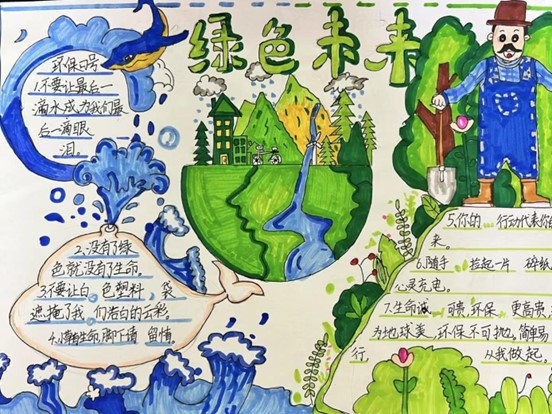 绿色未来
环保口号
1.不要让最后一
滴水成为我们最
后一滴眼
泪。
2.没有了绿
色就没有了生命
3.不要让白色塑料袋
遮掩了我们洁白的云彩。
4.小草有生命脚下请留情。
5.你的行动代表你的
来。
6.随手捡起一片碎纸
心灵充电。
7.生命诚可贵环保更高贵。
为地球美,环保不可抛。简单易
行,从我做起。